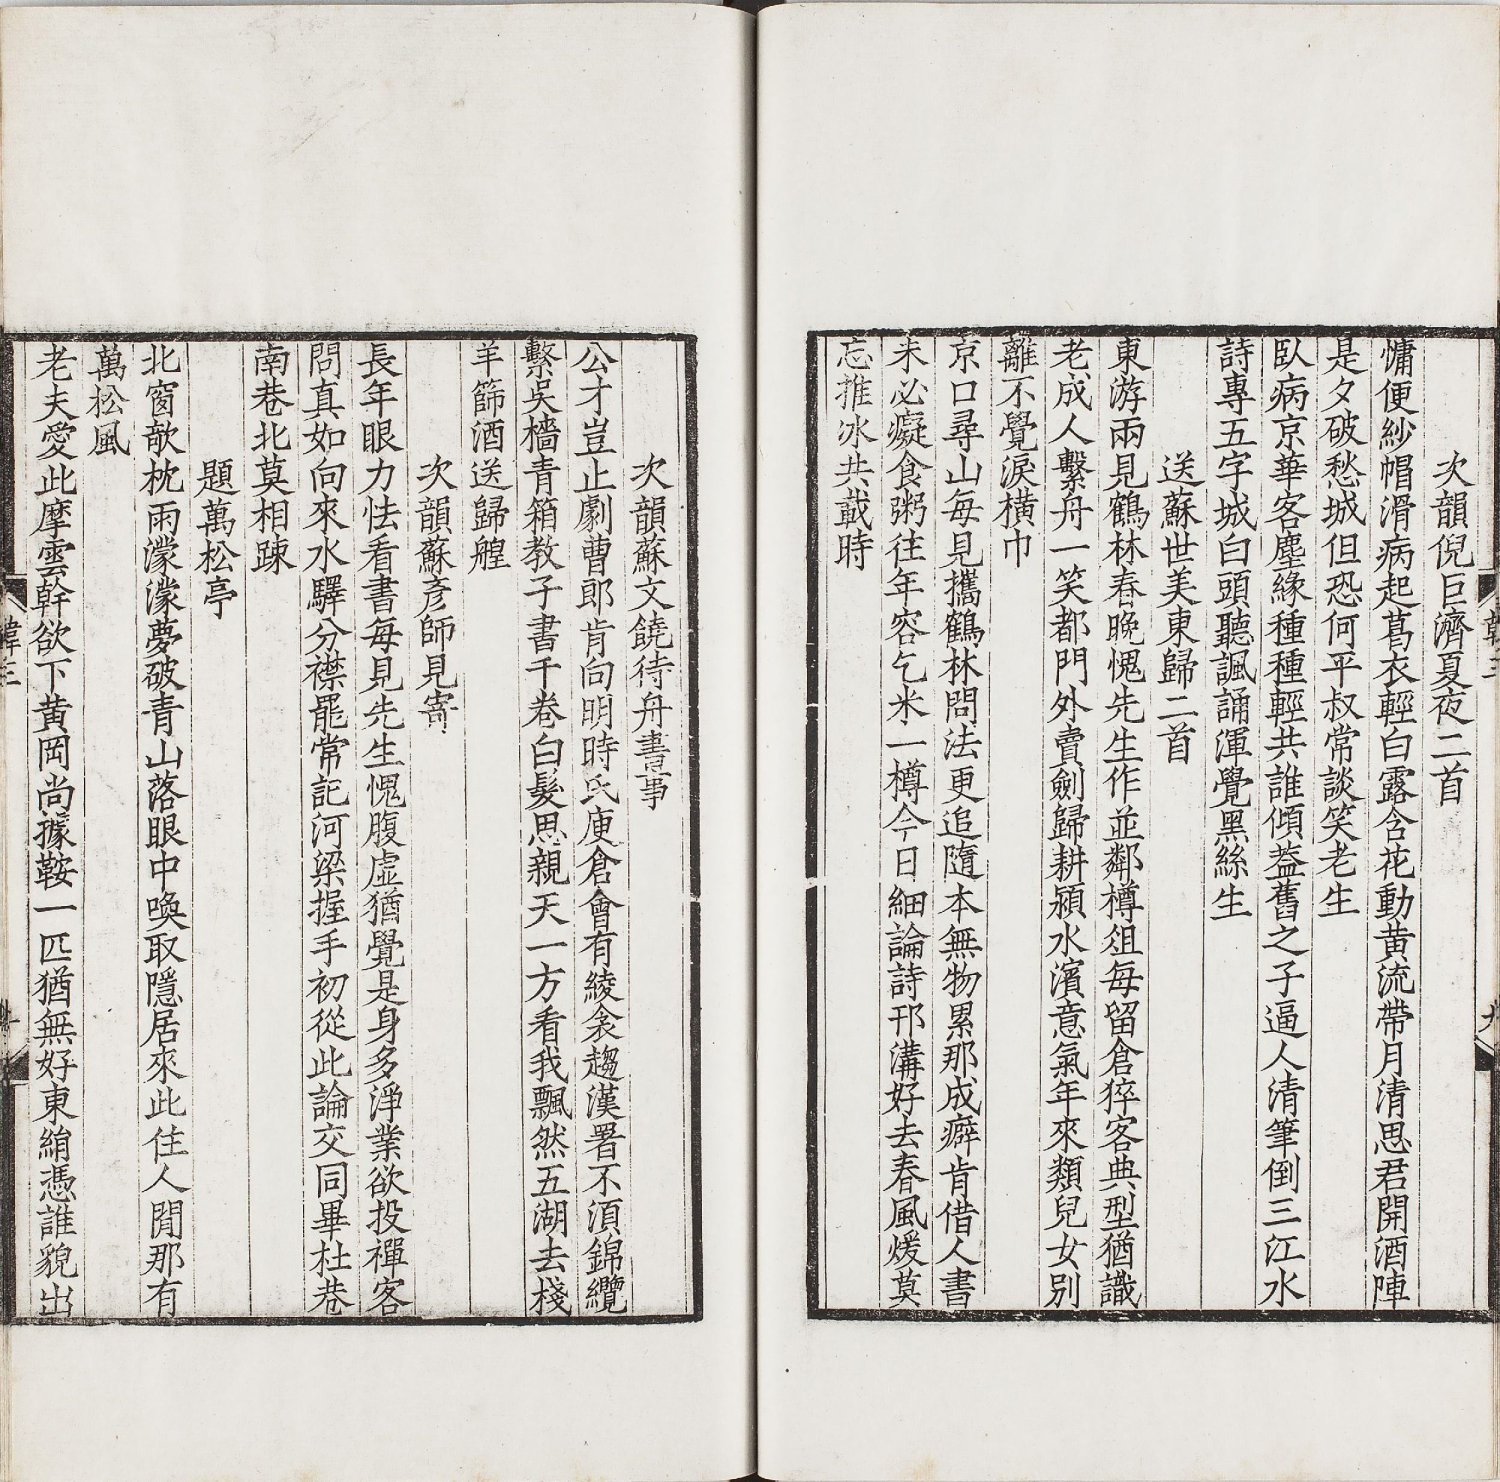 次韻倪巨濟夏夜二首
慵便紗帽滑病起葛衣輕白露含花動黃流帶月清思君開酒陣
是夕破愁城但恐何平叔常談笑老生
臥病京華客塵緣種種輕共誰傾蓋舊之子逼人清筆倒三江水
詩專五字城白頭聽諷誦渾覺黑絲生
送蘇世美東歸二首
東游兩見鶴林春晚愧先生作並鄰樽俎每留倉猝客典型猶識
老成人繫舟一笑都門外賣劍歸耕潁水濱意氣年來類兒女別
離不覺淚橫巾
京口尋山每見攜鶴林問法更追隨本無物累那成癖肯借人書
未必癡食粥往年容乞米一樽今日細論詩邗溝好去春風煖莫
忘推冰共載時
次韻蘇文饒待舟書事
公才豈止劇曹郎肯向明時氏庾倉會有綾衾趨漢署不須錦纜
繫吳檣青箱教子書千卷白髮思親天一方看我飄然五湖去棧
羊篩酒送歸艎
次韻蘇彥師見寄
長年眼力怯看書每見先生愧腹虛猶覺是身多淨業欲投禪客
問真如向來水驛分襟罷常記河梁握手初從此論交同畢杜巷
南巷北莫相踈
題萬松亭
北窗欹枕雨濛濛夢破青山落眼中喚取隱居來此住人閒那有
萬松風
老夫愛此摩雲幹欲下黃岡尚據鞍一匹猶無好東絹憑誰貌出